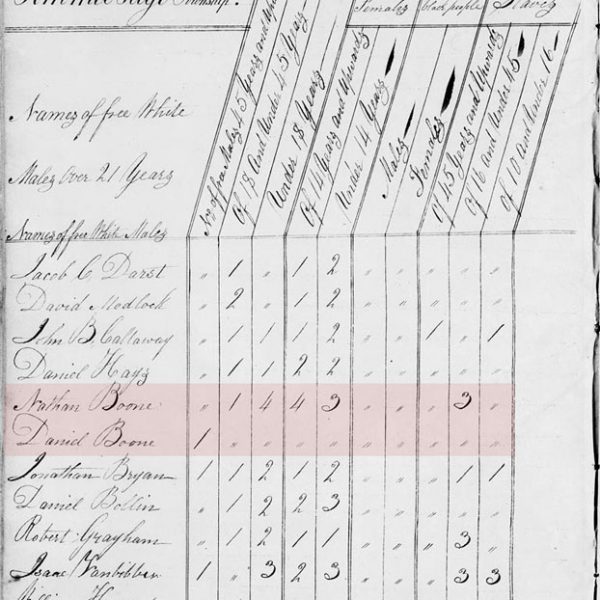 Township.
Females black people Slaves
Names of free White
Males over 21 Years
Names of free White Males
No of free Males 45 Years and
Of 18 And Under 45 Years
Under 18 Years
Of 14 Years and Upwards
Under 14 Years
Males
Females
Of 45 Years and Upwards
Of 16 and Under 45
Of 10 and Under 16
Jacob C Darst " 1 " 1 2 " " " " "
David Modlock " 2 " 1 2 " " " " "
John B Callaway " 1 1 1 2 " " 1 " 1
Daniel Hays " 1 1 2 2 " " " " "
Nathan Boone " 1 4 4 3 " " " 3 "
Daniel Boone 1 " " " " " " " " "
Jonathan Bryan 1 1 2 1 2 " " " 1 1
Daniel Bollin " 1 2 2 3 " " " " "
Robert Grayham " 1 2 1 1 " " " 3 "
Isaac Vanbibber 1 " 3 2 3 " " " 3 3